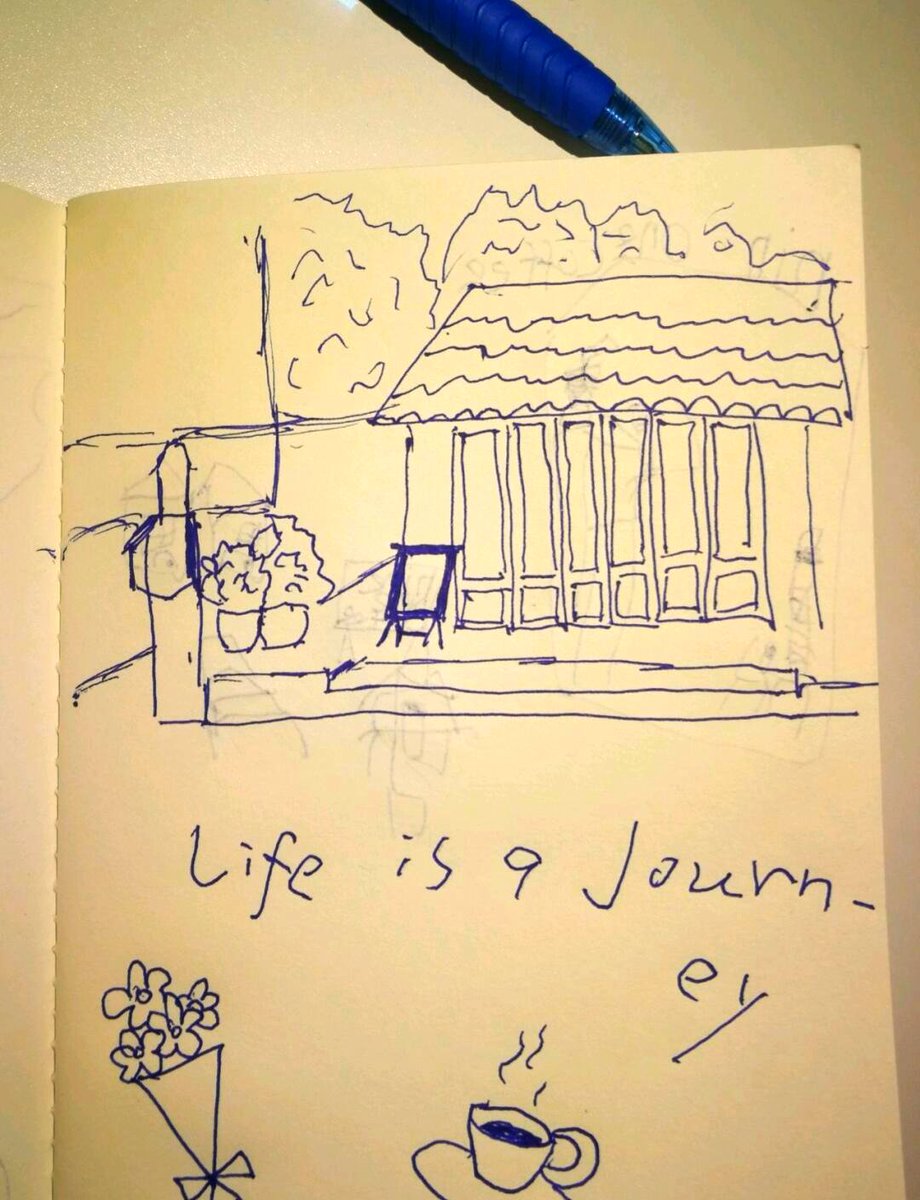 Life is a Journ-
ey